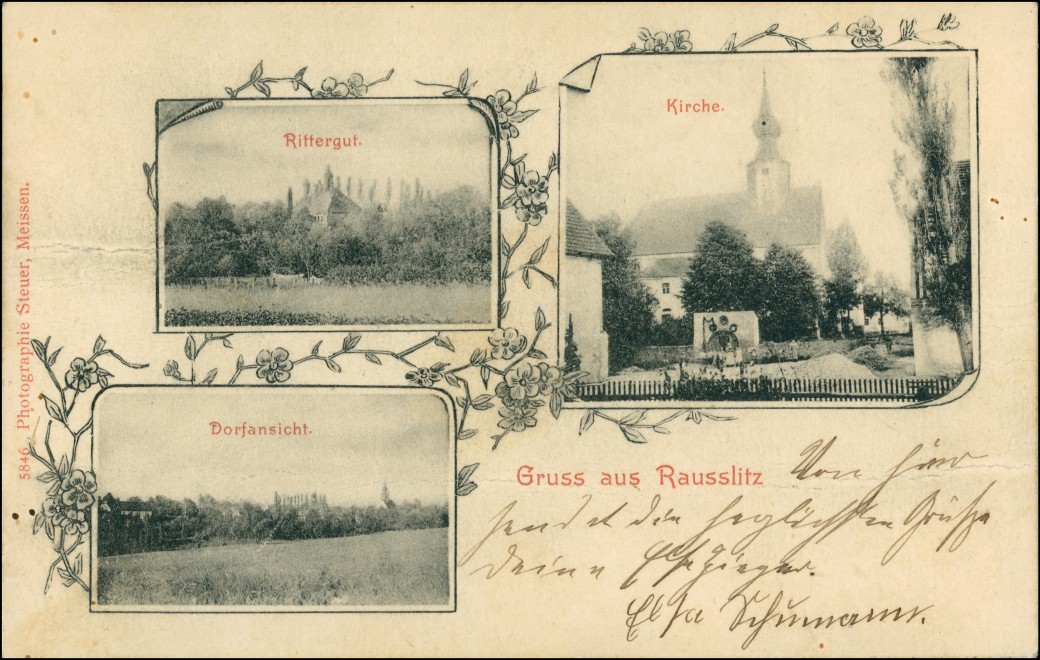 Rittergut.
Kirche.
Dorfansicht.
Gruss aus Rausslitz
Von hier
sendet die herzlichsten Grüße
Deine
Elsa Schumann.
5846 Photographie Steuer, Meissen.